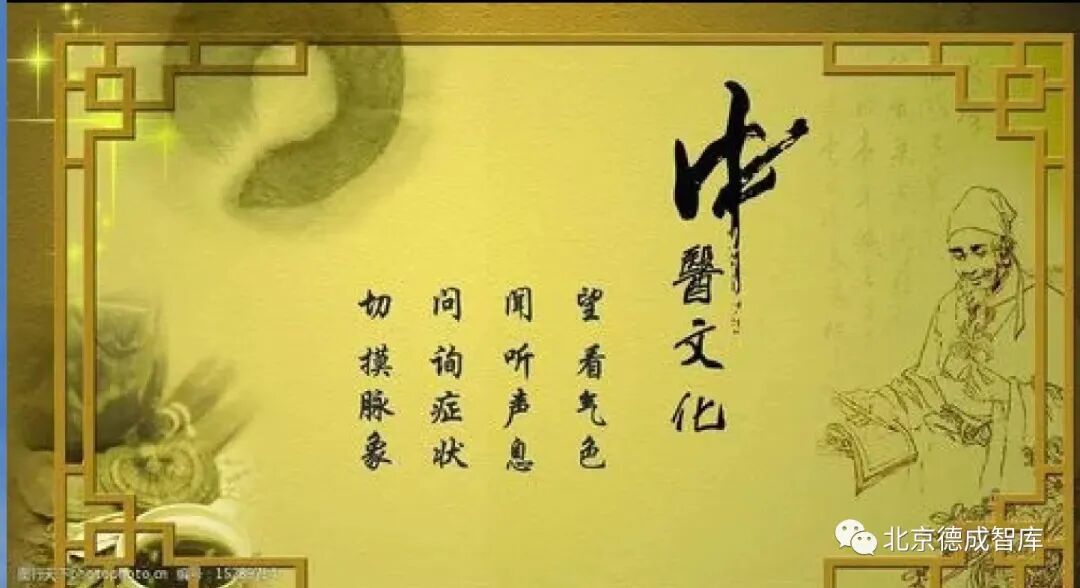 中醫文化
望 看气色
闻 听声息
问 询症状
切 摸脉象
北京德成智库
图行天下photophoto.cn 编号：